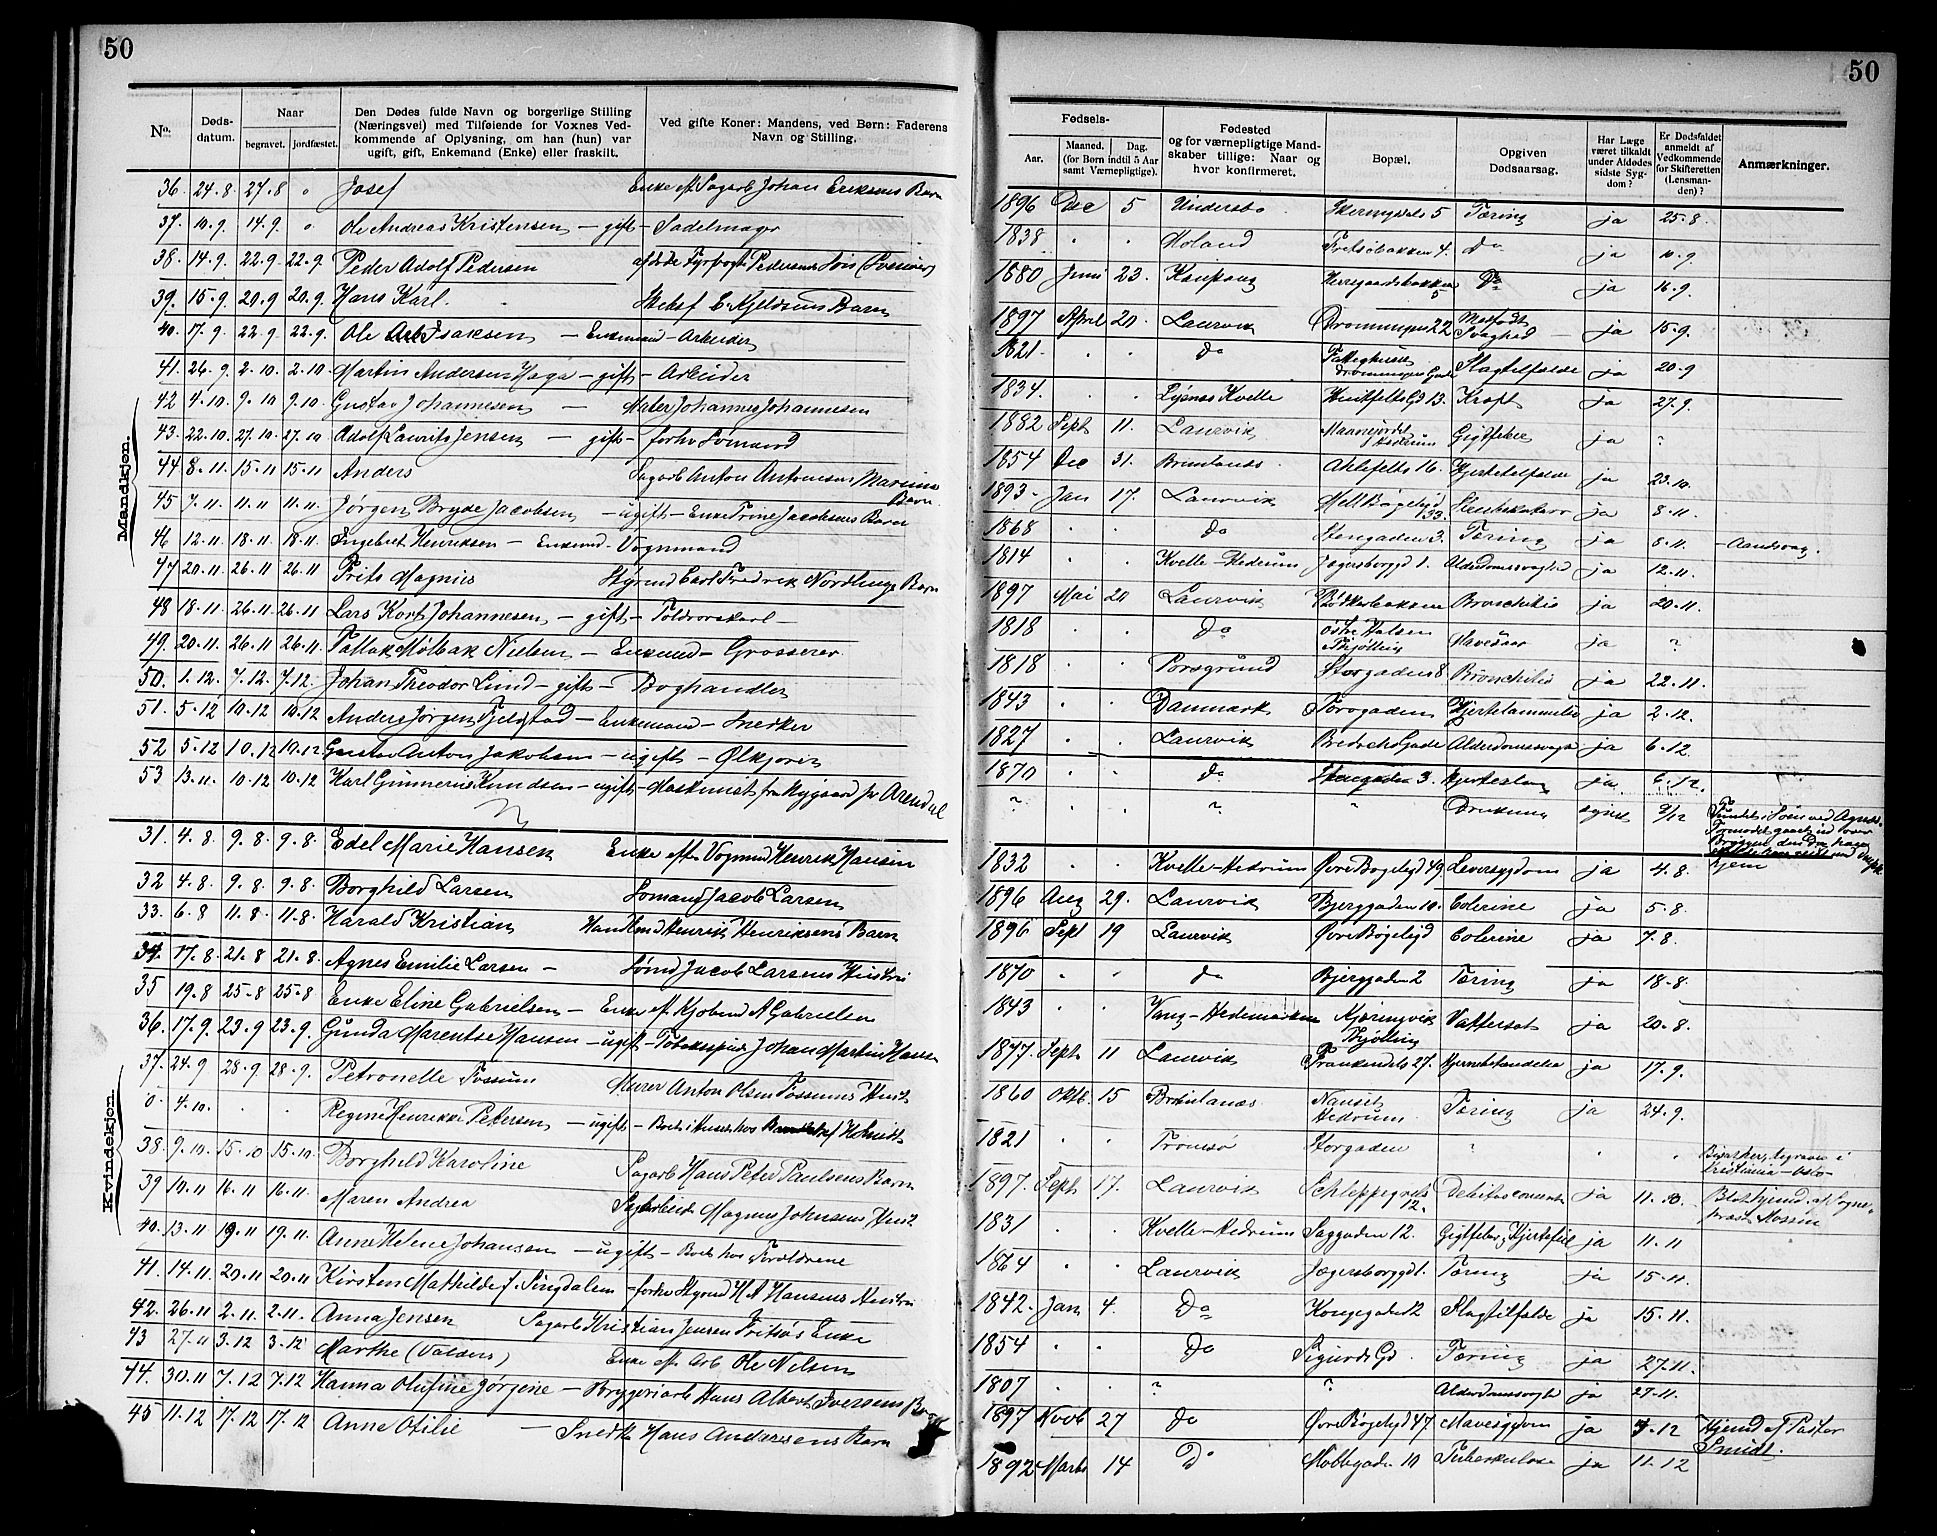 50
50
No.
Døds-
datum.
Naar
begravet.
jordfæstet.
Den Dødes fulde Navn og borgerlige Stilling
(Næringsvei) med Tilføiende for Voxnes Ved-
kommende af Oplysning, om han (hun) var
ugift, gift, Enkemand (Enke) eller fraskilt.
Ved gifte Koner: Mandens, ved Børn: Faderens
Navn og Stilling.
Fødsels-
Aar.
Maaned.
Dag.
(for Børn indtil 5 Aar
samt Værnepligtige).
Fødested
og for værnepligtige Mand-
skaber tillige: Naar og
hvor konfirmeret.
Bopæl.
Opgiven
Dødsaarsag.
Har Læge
været tilkaldt
under Afdødes
sidste Syg-
dom?
Er Dødsfaldet
anmeldt af
Vedkommende
for Skifteretten
(Lensman-
den)?
Anmærkninger.
Mandkjøn.
36. 24.8. 27.8 " Josef Enke ef. Sagarb Johan Eriksens Barn 1896 Dec 5 Undersbo 5 Tæring ja 25.8.
37. 10.9. 14.9. " Ole Andreas Kristensen – gift – Sadelmager 1838 . . Holand Fritsøbakken 4. Do ja 10.9.
38. 14.9. 22.9. 22.9. Peder Adolf Pedersen afdøde Fyrvogt Pedersens Søn 1880 Juni 23. Kaupang Herregaardsbakken 5 Do ja 16.9.
39. 15.9. 20.9 20.9. Hans Karl. E. Kjeldsens Barn 1897 April 20 Laurvik Dronningens 22 Medfødt Svaghed ja 15.9.
40. 17.9. 22.9 22.9. Ole Isaksen – Enkemand – Arbeider 1821. . . do Fattighuset Dronningens Gade Slagtilfælde ja 20.9
41. 26.9. 2.10. 2.10. Martin Andersen Haga – gift – Arbeider 1834. . . Kvelle Hvitfelts Gd 13. Kræft ja 27.9.
42 4.10. 9.10 9.10. Gustav Johannesen – Maler Johannes Johannesen 1882 Sept 11. Laurvik Hedrum Gigtfeber ja ?
43. 22.10. 27.10 27.10 Adolf Laurits Jensen – gift – forhv Sømand 1854 Dec 31. Brunlanes. Ahlefelts 16. Hjertefælde ja 23.10.
44 8.11. 15.11 15.11 Anders Sagarb Anton Antonsen Barn 1893 Jan 17. Laurvik 133. ja 8.11.
45 7.11. 11.11 11.11. Jørgen Bryde Jacobsen – ugift – Enke Trine Jacobsens Barn 1868 . . do Stengaden 3. Tæring ja 8.11. – Aandssvag.
46 12.11. 18.11 18.11. Engebret Henriksen – Enkemd. Vognmand 1814 . . Kvelle-Hedrum Jægersborggd 1. Alderdomssvaghed ja 12.11.
47 20.11. 26.11 26.11 Frits Magnus Styrmd Carl Fredrik Nordlings Barn 1897 Mai 20 Laurvik Bødkerbakken Bronchitis ja 20.11.
48 18.11. 26.11. 26.11 Lars Kort Johannesen – gift – Toldrorskarl 1818 . . Do østre Halsen Thjølling ja ?
49. 20.11. 26.11 26.11. Møllbak Nielsen – Enkmd – Grosserer 1818 . . Porsgrund Storgaden 8. Bronchitis ja 22.11.
50. 1.12. 7.12. 7.12. Johan Theodor Lund – gift – Boghandler 1843 . . Danmark Torvgaden Hjertelammelse ja 2.12.
51. 5.12 10.12 10.12 Anders Jørgen Fjeldstad – Enkemand – Snedker 1827 . . Laurvik Gade Alderdomssvagh ja 6.12.
52 5.12 10.12 10.12 Gustav Anton Jakobsen – ugift – Ølkjører 1870 . . do Stengaden 3. ja 6.12.
53 13.11. 10.12 10.12 Karl Gunnerius Knudsen – ugift – Maskinist fra Nygaard pr Arendal ? . . ? " Drukning 9/12 Fundet i Søen ved
Kvindekjøn.
31. 4.8. 9.8. 9.8. Edel Marie Hansen Enke efter Vognmd Henrik Hansen 1832 . . Kvelle-Hedrum Øvre Bøgeligd 49 Leversygdom ja 4.8. hjem
32 4.8. 9.8. 9.8. Borghild Larsen Sømand Jacob Larsen 1896 Aug 29. Laurvik Bjerggaden 10. Colerine ja 5.8.
33. 6.8 11.8. 11.8. Harald Kristian Handlmd Henrik Henriksens Barn 1896 Sept 19 Laurvik Øvre Bøgeligd Colerine ja 7.8.
34. 17.8. 21.8 21.8. Agnes Emilie Larsen – Sømd Jacob Larsens Hustru 1870 . . do Bjerggaden 2 Tæring ja 18.8.
35 19.8 25.8 25.8 Enke Eline Gabrielsen – Enke ef. Kjøbmd A Gabrielsen 1843 . . Vang-Hedemarken Kjæringvik Thjølling Vattersot ja 20.8.
36. 17.9. 23.9 23.9. Gunda Marentse Hansen – ugift – Tobakspind. Johan Martin Hansen 1877. Sept 11 Laurvik Frankendals 27. ja 17.9.
37. 24.9 28.9 28.9. Petronelle Fossum Murer Anton Olsen Fossums Hust 1860 Oktb. 15 Brunlanæs. Nanset Hedrum Tæring ja 24.9.
0. 4.10. . . Regine Henrikke Petersen – ugift – Boede i Huset hos H Smidt 1821 . . Tromsø Storgaden ? . " begraven i Kristiania – Oslo –
38. 9.10. 15.10 15.10. Borghild Karoline Sagarb Hans Peter Paulsens Barn 1897. Sept 17. Laurvik Schleppegrels 12. ja 11.10. Hjemd. af Sogne-
39 10.11 16.11 16.11. Maren Andrea Sagarbeid Magnus Johnsens Hust 1831 . . Kvelle-Hedrum Saggaden 12. Gigtfeber, Hjertefeil ja 11.11
40. 13.11 19.11 19.11. Anne Helene Johansen – ugift – Boede hos Forældrene 1864 . . Laurvik Jægersborggd 1. Tæring ja 15.11.
41. 14.11. 20.11 20.11 Kirsten Mathilde f. Singdalen – forhv Styrmd H A Hansens Hustru 1842. Jan 4. Do Kongegaden 2 Slagtilfælde ja 15.11.
42. 26.11 2.11. 2.11. Anna Jensen Sagarb Kristian Jensen Fritsøs Enke 1854 . . Do Sigurds Gd. Tæring ja 27.11.
43 27.11 3.12 3.12 Marthe (Valders) Enke ef. Arb Ole Nilsen 1807 . . ? ? Alderdomssvagh ja 27.11.
44. 30.11 7.12 7.12 Hanna Olufine Jørgine – Bryggeriarb Hans Albert Iversens Barn 1897 Novb 27 do Øvre Bøgeligd 47. Mavesygdom ja .12 Hjemd af Pastor Smidt.
45 11.12 17.12 17.12 Anne Otilie – Snedk Hans Andersens Barn 1892 Marts 14 Do Møllegaden 10 Tuberkulose ja 11.12